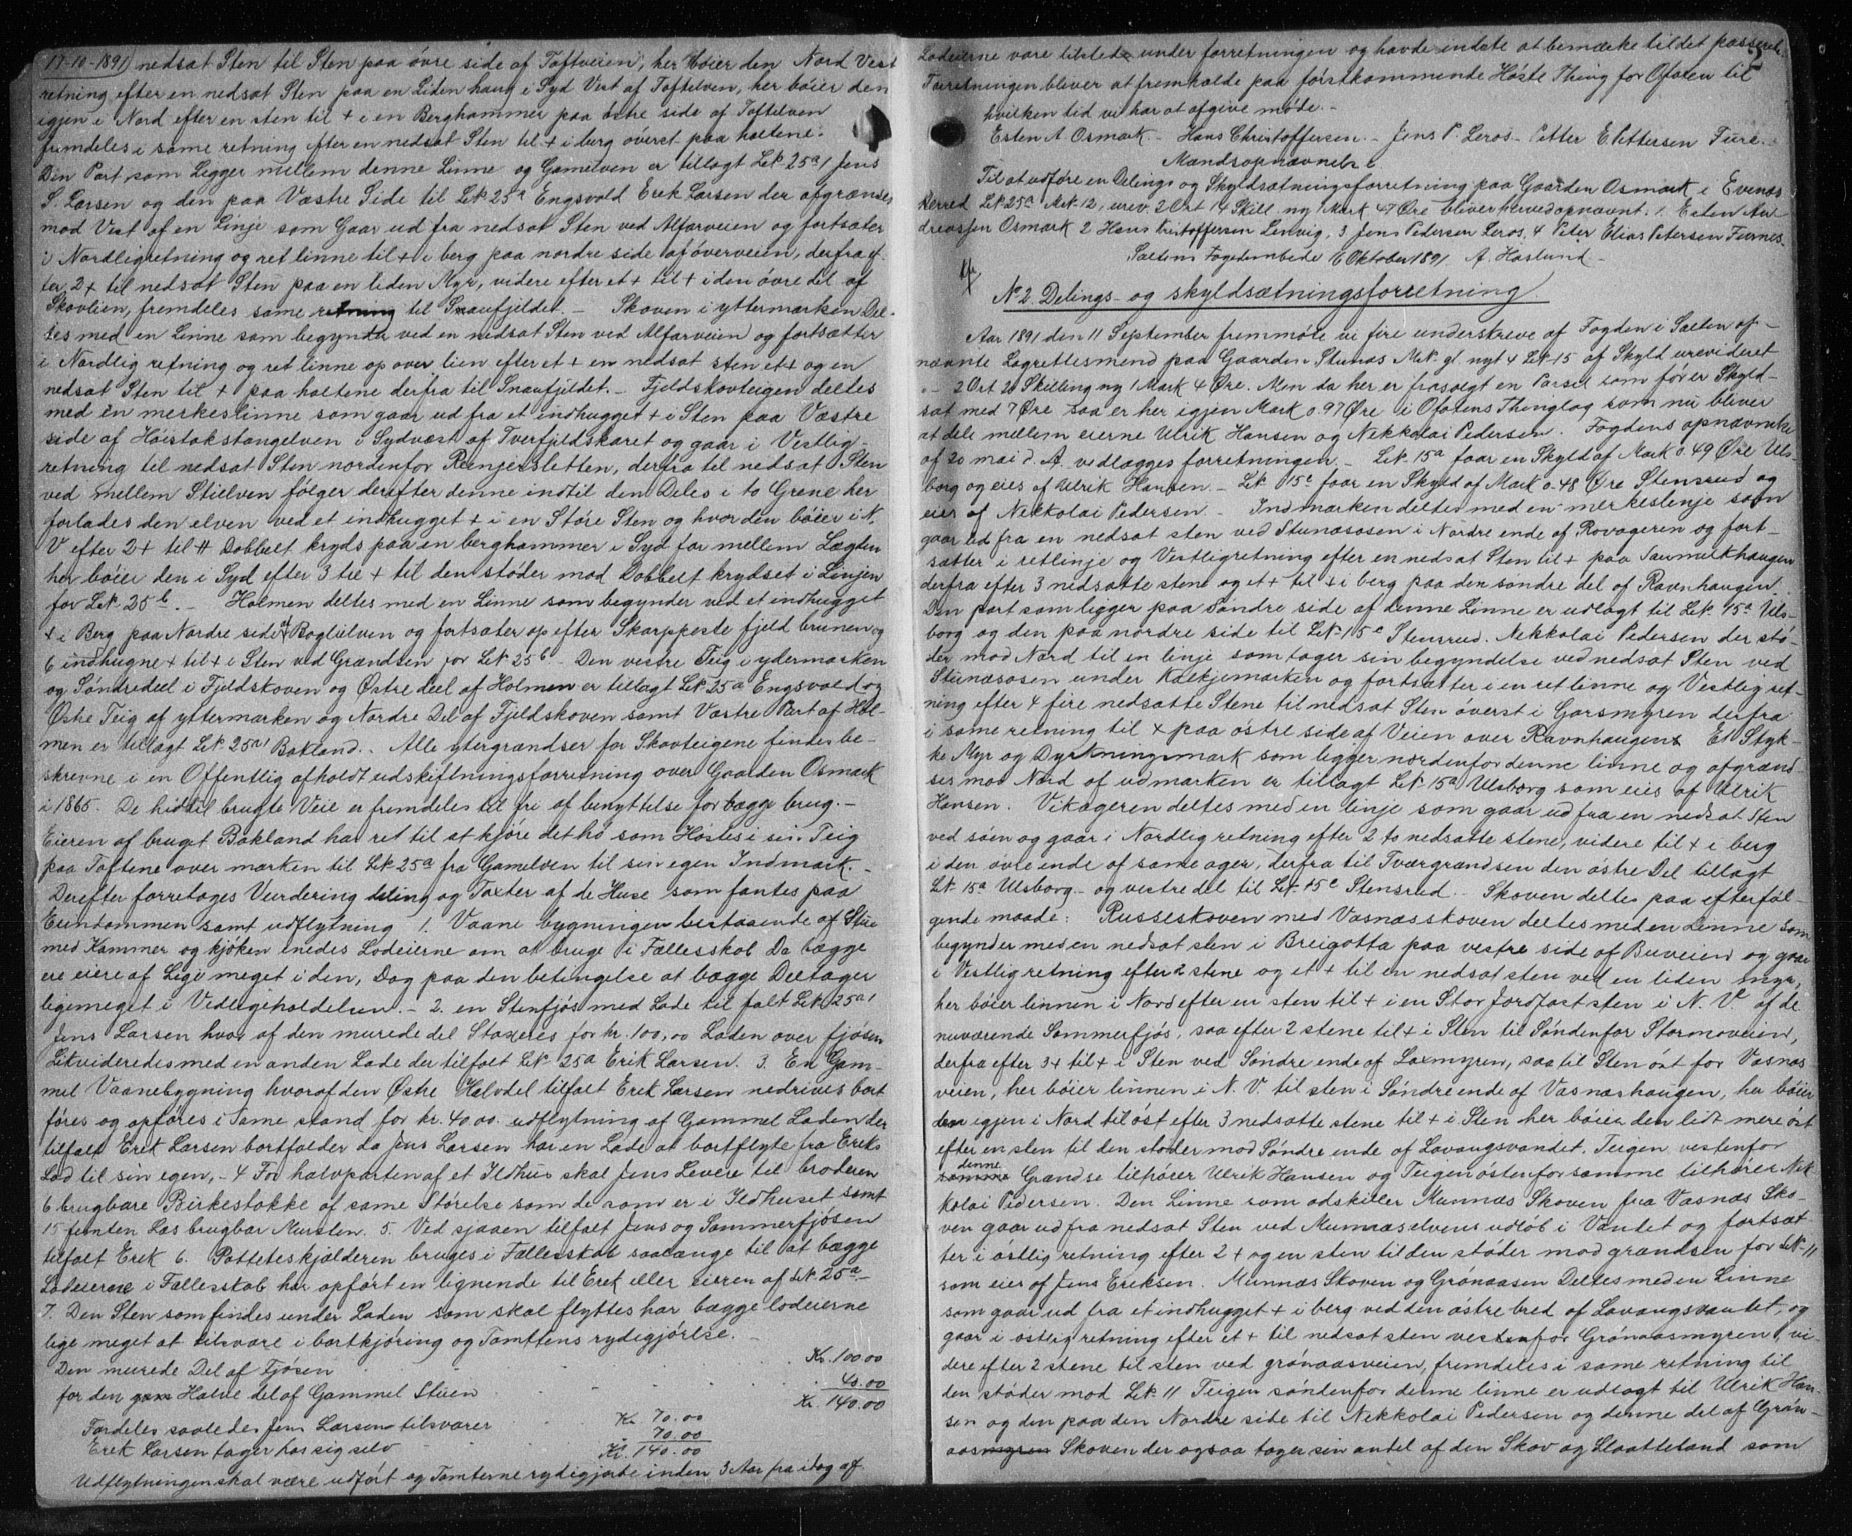 17-10-1891 nedsat Sten til Sten paa övre side af Toftveien, her böier den Nord Vest
retning efter en nedsat Sten paa en Liden haug i Syd Vest af Toftelven, her böier den
igjen i Nord efter en sten til + i en Berghammer paa östre side af Toftelven
fremdeles i same retning efter en nedsat Sten til + i berg överst paa haltene.
Den Part som Ligger mellem denne Linne og Gamelven er tillagt Lk. 25a1 Jens
S. Larsen og den paa Væstre Side til Lk. 25a Engsvold Erek Larsen der afgrænses
mod Vest af en Linje som Gaar ud fra nedsat Sten ved Alfarveien og fortsæter
i Nordlig retning og ret linne til + i berg paa nordre side af överveien, derfra ef-
ter 2 + til nedsat Sten paa en liden Myr, videre efter et + til + i den övre del af
Skovlien, fremdeles same retning til Snaufjeldet. - Skoven i yttermarken Del-
tes med en Linne som begynder ved en nedsat Sten ved Alfarveien og fortsætter
i Nordlig retning og ret linne op over lien efter et + en nedsat sten et + og en
nedsat Sten til + paa haltene derfra til Snaufjeldet. - Fjeldskovteigen deltes
med en merkeslinne som gaar ud fra et indhugget + i Sten paa Væstre
side af Höistakstangelven i Sydvest af Tverfjeldskaret og gaar i Vestlig-
retning til nedsat Sten nordenfor Renjerslletten, derfra til nedsat Sten
ved mellem Stielven fölger derefter denne indtil den Deles i to Grene her
forlades den elven ved et indhugget + i en Störe Sten og hvor den böier i N.
V efter 2 + til # Dobbelt kryds paa en berghammer i Syd for mellem Lægden
her böier den i Syd efter 3 tre + til den stöder mod Dobbelt krydset i Linjen
for Lk. 25b. - Holmen deltes med en Linne som begynder ved et indhugget
+ i Berg paa Nordre side af Boglielven og fortsæter op efter Skarpeste fjeld brunen og
6 indhugne + til + i Sten ved Grændsen for Lk. 25b - Den vestre Teig i ydermarken
og Söndre deel i Fjeldskoven og Östre deel af Holmen er tillagt Lk. 25a Engsvold og
Östre Teig af yttermarken og Nordre Del af Fjeldskoven samt Væstre Part af Hol-
men er tillagt Lk. 25a1 Bakland. - Alle ytergrændser for Skovteigene findes be-
skrevne i en Offentlig afholdt udskiftningsforretning over Gaarden Osmark
i 1865. De hidtil brugte Veie er fremdeles til fri af benyttelse for begge brug. -
Eieren af bruget Bakland har ret til at kjöre det hö som Höstes i sin Teig
paa Toftene over marken til Lk. 25a fra Gamelven til sin egen Indmark. -
Derefter forretoges Verdering deling og Taxter af de Huse som fantes paa
Eiendommen samt udflytning 1. Vaane bygningen bestaaende af Stue
med Kammer og kjöken enedes Lodeierne om at bruge i Fællesskab Da begge
ere eiere af Lige meget i den, Dog paa den betingelse at begge Deltager
ligemeget i Vedligeholdelsen. - 2. en Stenfjös med Lade til falt Lk. 25a1
Jens Larsen hvor af den murede del Staxeres for kr. 100,00 Laden over fjösen
Likvideredes med en anden Lade der tilfalt Lk. 25a Erik Larsen. 3. En Gam-
mel Vaanebygning hvoraf den Östre Halvdel tilfalt Erik Larsen nedrives bort
föres og opföres i Same stand for kr. 40.00. udflytning af Gammel Laden der
tilfalt Erik Larsen bortfalder da Jens Larsen har en Lade at bortflyte fra Eriks
Lod til sin egen, - 4 For halvparten af et Ildhus skal Jens Levere til broderen
6 brugbare Birkestokke af same Störelse som de som er i Ildhuset samt
15 femten Las brugbar Mursten. 5. Ved sjaaen tilfalt Jens og Sommerfjösen
tilfalt Erik 6. Potteteskjælderen bruges i Fællesskab saalænge til at begge
Lodeierne i Fællesskab har opfört en lignende til Erik eller eieren af Lk. 25a -
7. Den Sten som findes under Laden som skal flyttes har begge lodeierne
lige meget at tilsvare i bortkjöring og Tomttens rydigjörlse.
Den murede Del af Fjösen . . . Kr. 100.00
for den Halve del af Gammel Stuen . . . 40.00
Kr. 140.00
Fordeles saaledes Jens Larsen tilsvarer . Kr. 70.00
Erek Larsen tager hos sig selv . 70.00
Kr. 140.00
Udflytningen skal være udfört og Tomterne rydigjorte inden 3 Aar fra idag af
Lodeierne vare tilstede under forretningen og havde indete at bemærke til det passerede.
Forretningen bliver at fremholde paa förstkommende Höste Thing for Ofoten til
hvilken tid vi har at afgive möde. -
Esten A Osmark - Hans Christoffersen - Jens P. Leros - Petter E. Pettersen Fure.
Mændsopnævnelse
Til at udföre en Delings og Skyldsætningsforretning paa Gaarden Osmark i Evenæs
Herred Lk. 25a Mk. 12, urev. 2 Ort 14 Skill, ny 1 Mark 47 Öre bliver herved opnævnt: 1. Esten An-
dreassen Osmark 2 Hans Cristoffersen Lenvig, 3 Jens Pedersen Leros, 4 Peter Elias Petersen Furnes.
Saltens Fogedembede 6 Oktober 1891 A. Haslund -
No 2. Delings- og skyldsætningsforretning
Aar 1891 den 11 September fremmöte vi fire underskreve af Fogden i Salten op-
nævnte Lagrettesmend paa Gaarden Stunæs Mk. gl nyt 4 Lk. 15 af Skyld urevideret
- 2 Ort 20 Skilling ny 1 Mark 4 Öre. Men da her er frasolgt en Parsel som för er Skyld-
sat med 7 Öre saa er her igjen Mark 0.97 Öre i Ofotens Thinglag som nu bliver
at dele mellem eierne Ulrik Hansen og Nekkolai Pedersen. Fogdens opnævnelse
af 20 mai d. A. vedlægges forretningen. - Lk. 15a faar en Skyld af Mark 0.49 Öre Uls-
borg og eies af Ulrik Hansen. - Lk. 15c faar en Skyld af Mark 0.48 Öre Stensrud og
eies af Nekkolai Pedersen. - Indmarken deltes med en merkeslinje som
gaar ud fra en nedsat sten ved Stunæsosen i Nordre ende af Rovageren og fort-
sætter i retlinje og Vestligretning efter en nedsat Sten til + paa Saumelkhaugen
derfra efter 3 nedsatte stene og et + til + i berg paa den söndre del af Ravnhaugen.
Den part som ligger paa Söndre side af denne Linne er udlagt til Lk. 15a Uls-
borg og den paa nordre side til Lk. 15c Stensrud. Nekkolai Pedersen der stö-
der mod Nord til en linje som tager sin begyndelse ved nedsat Sten ved
Stunæsosen under Kalkjemarken og fortsætter i en ret linne og Vestlig ret-
ning efter 4 fire nedsatte Stene til nedsat Sten överst i Garsmyren derfra
i same retning til + paa östre side af Veien over Ravnhaugen. Et Styk-
ke Myr og Dyrkningsmark som ligger nordenfor denne linne og afgrænd-
ses mod Nord af udmarken er tillagt Lk. 15a Ulsborg som eies af Ulrik
Hansen. Vikageren deltes med en linje som gaar ud fra en nedsat Sten
ved söen og gaar i Nordlig retning efter 2 to nedsatte stene, videre til + i berg
i den övre ende af same ager, derfra til Tværgrændsen den östre Del tillagt
Lk. 15a Ulsborg - og vestre del til Lk. 15c Stensrud. Skoven deltes paa efterföl-
gende maade: Russeskoven med Vasnæsskoven deltes med en Linne som
begynder med en nedsat sten i Breigotta paa vestre side af Buveien og gaar
i Vestlig retning efter 2 stene og et + til en nedsat sten ved en liden myr,
her böier linnen i Nord efter en sten til + i en Stor Jordfast sten i N. V. af de
nuværende Sommerfjös, saa efter 2 stene til + i Sten til Söndenfor Stormoveien,
derfra efter 3 + til + i Sten ved Söndre ende af Laxmyren, saa til Sten öst for Vasnæs
veien, her böier linnen i N. V. til sten i Söndre ende af Vasnæshaugen, her böier
den igjen i Nord til öst efter 3 nedsatte stene til + i Sten her böier den lidt mere öst
efter en sten til den stöder mod Söndre ende af Lavangsvandet. Teigen vestenfor
denne Grændse tilhörer Ulrik Hansen og Teigen östenfor samme tilhörer Nek-
kolai Pedersen. Den Linne som adskiller Munnæs Skoven fra Vasnæs Sko-
ven gaar ud fra nedsat Sten ved Munnæselvens udlöb i Vandet og fortsæt-
ter i östlig retning efter 2 + og en sten til den stöder mod grændsen for Lk. 11
som eies af Jens Eriksen. Munnæs Skoven og Grönaasen Deltes med en Linne
som gaar ud fra et indhugget + i berg ved den östre bred af Lavangsvantet, og
gaar i östlig retning efter et + til nedsat sten vestenfor Grönaasmyren, vi-
dere efter 2 stene til sten ved grönaasveien, fremdeles i same retning til
den stöder mod Lk. 11 Teigen söndenfor denne linne er udlagt til Ulrik Han-
sen og den paa den Nordre side til Nekkolai Pedersen og denne del af Grön-
aasmyren Skoven der ogsaa tager sin antel af den Skov og Slaatteland som